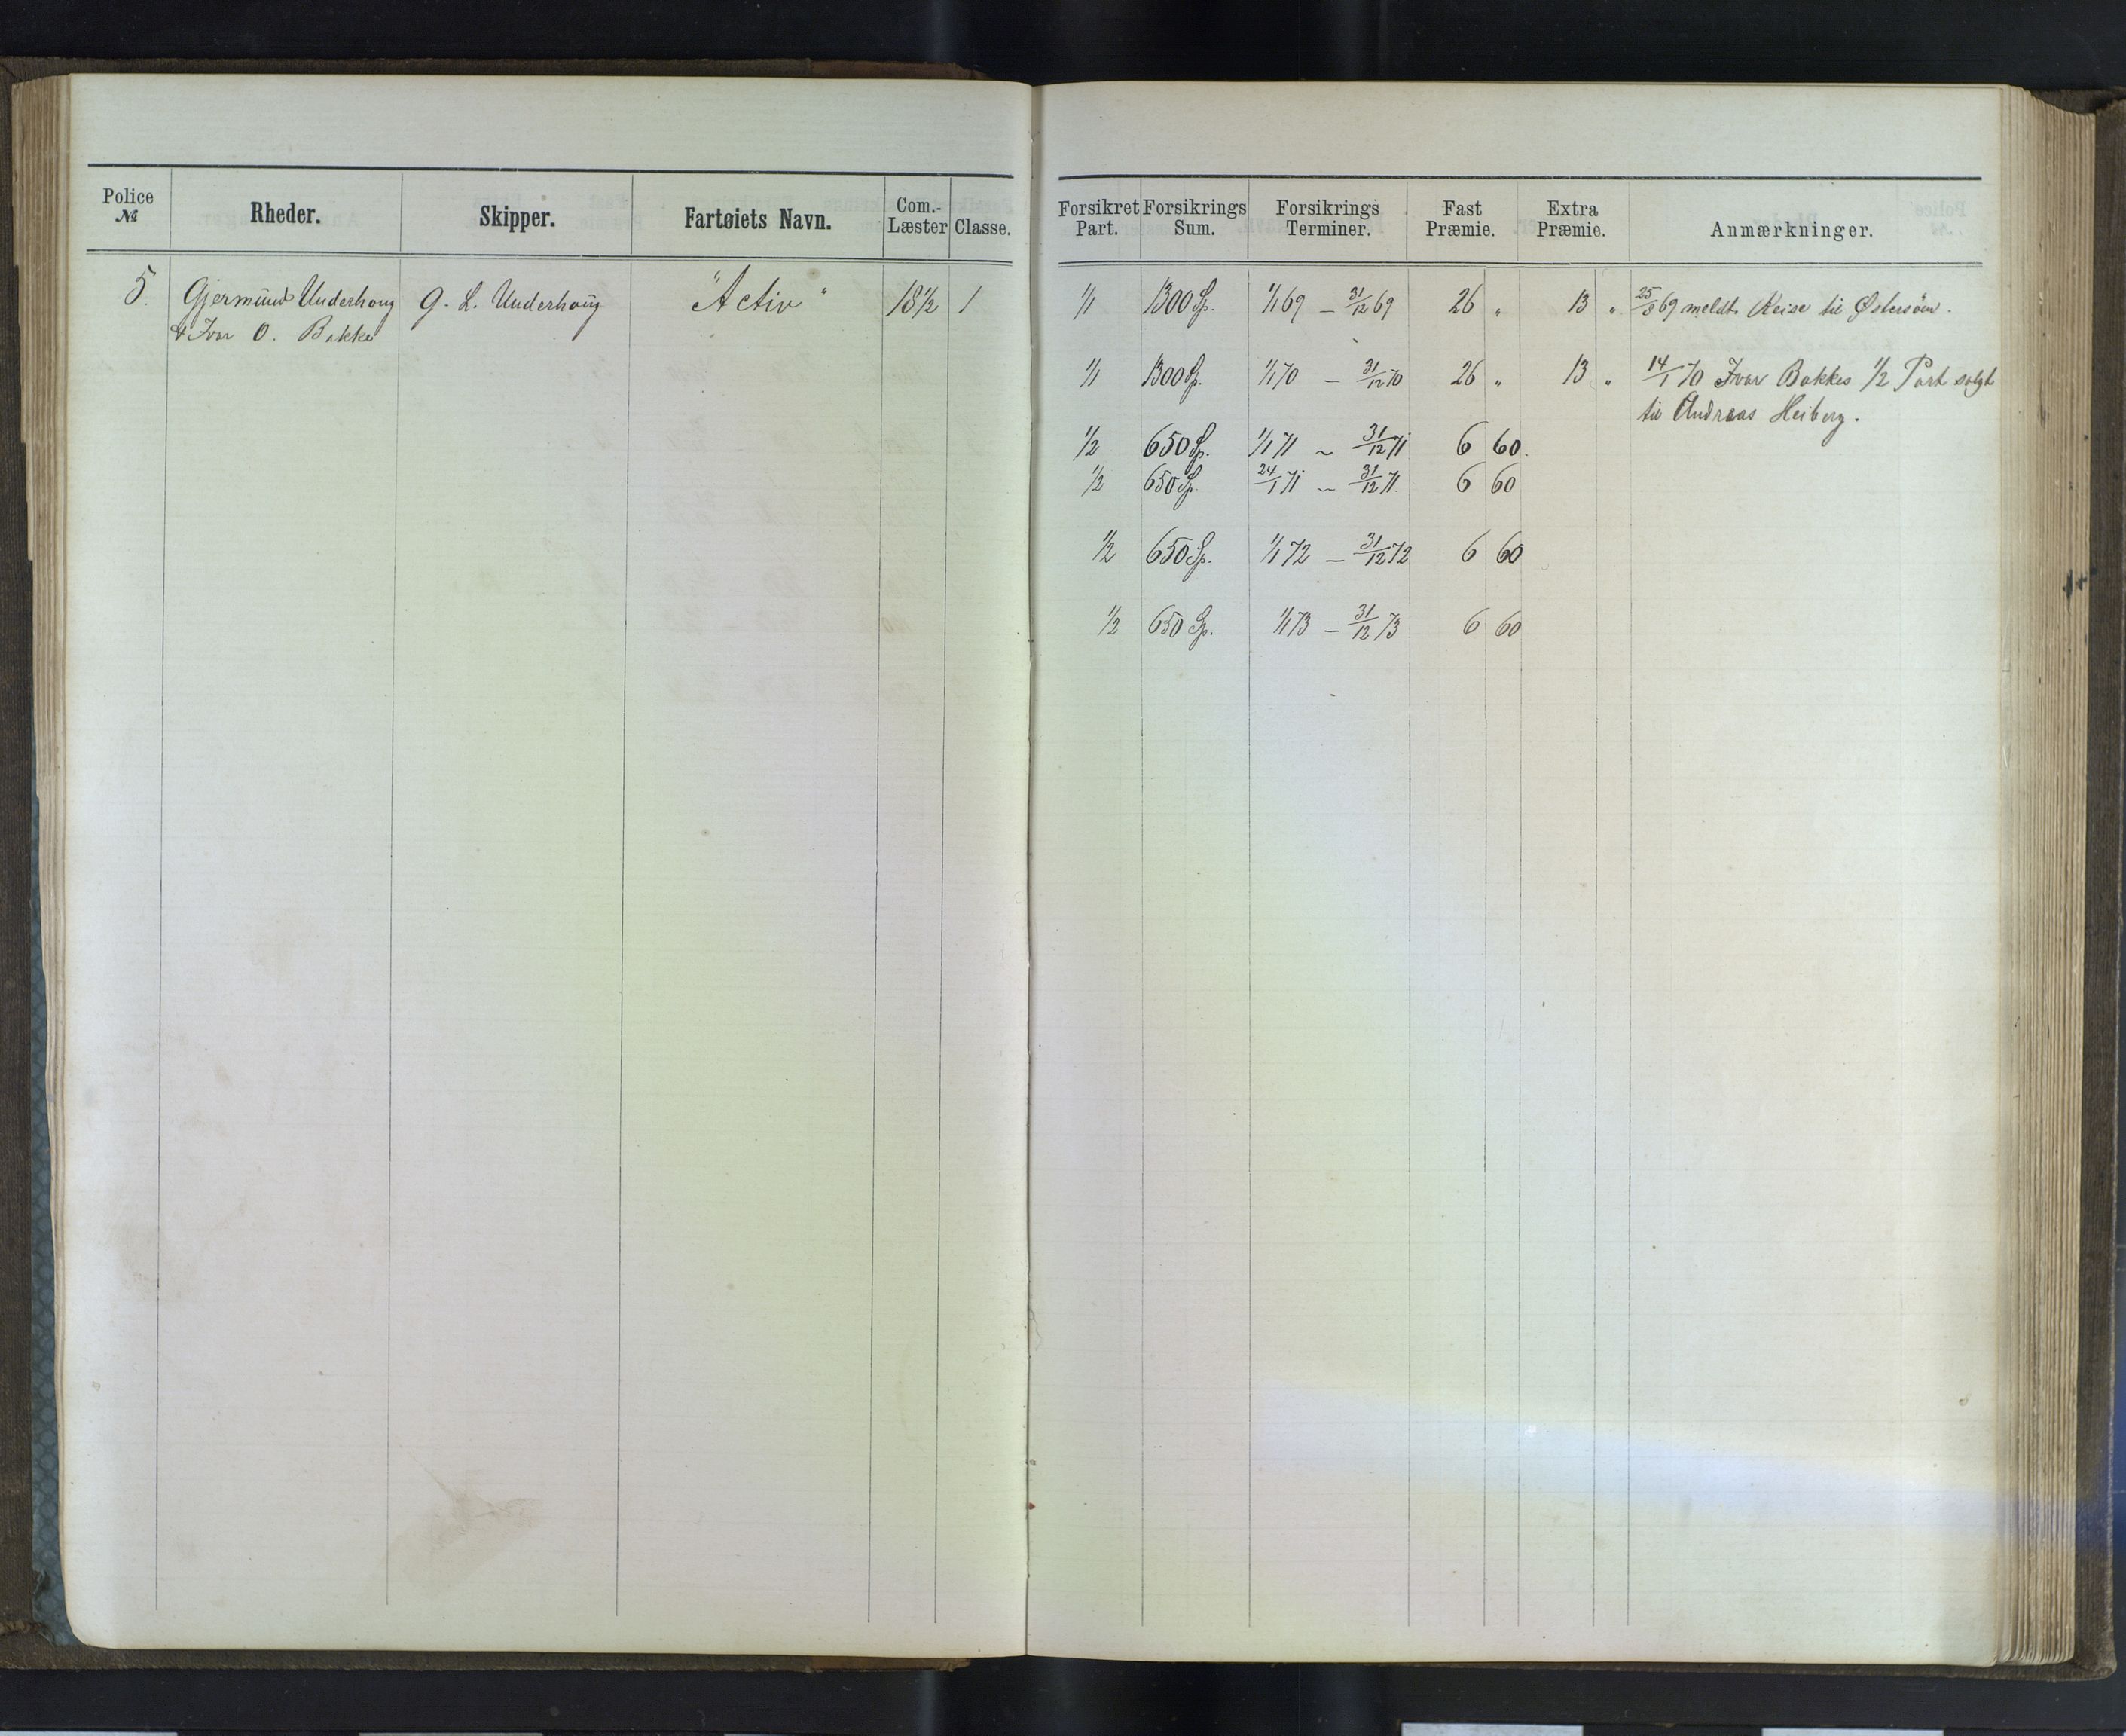 Police № Rheder. Skipper. Fartøiets Navn. Com.-Læster Classe. Forsikret Part. Forsikrings Sum. Forsikrings Terminer. Fast Præmie. Extra Præmie. Anmærkninger.
5. Gjermund Underhoug G. L. Underhoug "Activ" 18 1/2 1 1/1 1300 Sp. 1/1 69 – 31/12 69 26 „ 13 „ 25/8 69 meldt Reise til Østersöen.
& Ivar O. Bakke
1/1 1300 Sp. 1/1 70 – 31/12 70 26 „ 13 „ 14/1 70 Ivar Bakkes 1/2 Part solgt
til Andreas Heiberg.
1/2 650 Sp. 1/1 71 ~ 31/12 71 6 60.
1/2 650 Sp. 24/1 71 ~ 31/12 71. 6 60
1/2 650 Sp. 1/1 72 – 31/12 72 6 60
1/2 650 Sp. 1/1 73 – 31/12 73 6 60